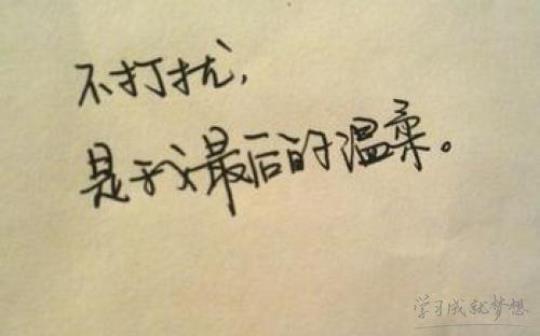 不打扰,
是我最后的温柔。
学习成就梦想